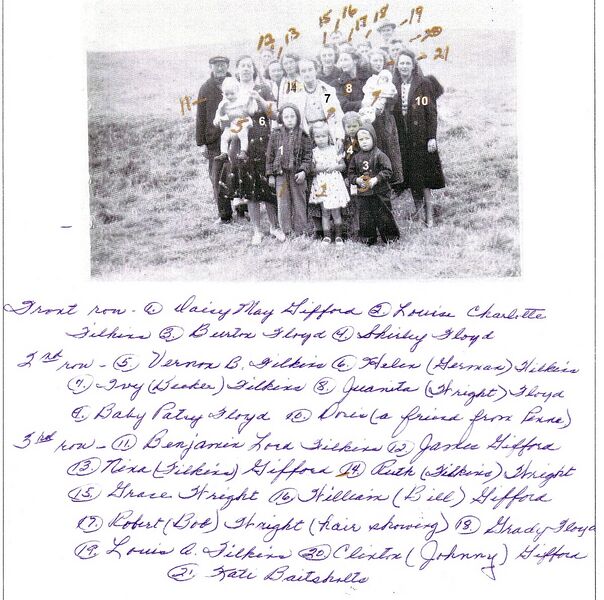 15 16 17 18 19
12 13 20
21
11 14 7 8 9 10
5 6
1 2 4 3
1 2 3
Front row - ① Daisy May Gifford ② Louise Charlotte
Filkins ③ Burton Floyd ④ Shirley Floyd
2nd row - ⑤ Vernon B. Filkins ⑥ Helen (German) Filkins
⑦ Ivy (Decker) Filkins ⑧ Juanita (Wright) Floyd
⑨ Baby Patsy Floyd ⑩ Doris (a friend from Penna)
3rd row - ⑪ Benjamin Lord Filkins ⑫ James Gifford
⑬ Nina (Filkins) Gifford ⑭ Ruth (Filkins) Wright
⑮ Grace Wright ⑯ William (Bill) Gifford
⑰ Robert (Bob) Wright (hair showing) ⑱ Grady Floyd
⑲ Louis A. Filkins ⑳ Clinton (Johnny) Gifford
㉑ Kati Baitsholts